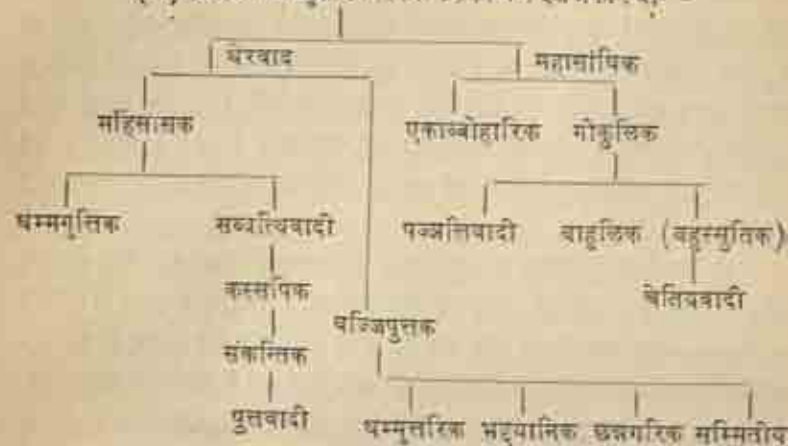 थेरवाद महासांघिक
महिंसासक एकाब्बोहारिक गोकुलिक
धम्मगुत्तिक सब्बत्थिवादी पञ्ञत्तिवादी बाहुलिक (बहुस्सुतिक)
कस्सपिक चेतियवादी
वज्जिपुत्तक
संकन्तिक
पुत्तवादी धम्मुत्तरिक भद्रयानिक छन्नगरिक सम्मितीय